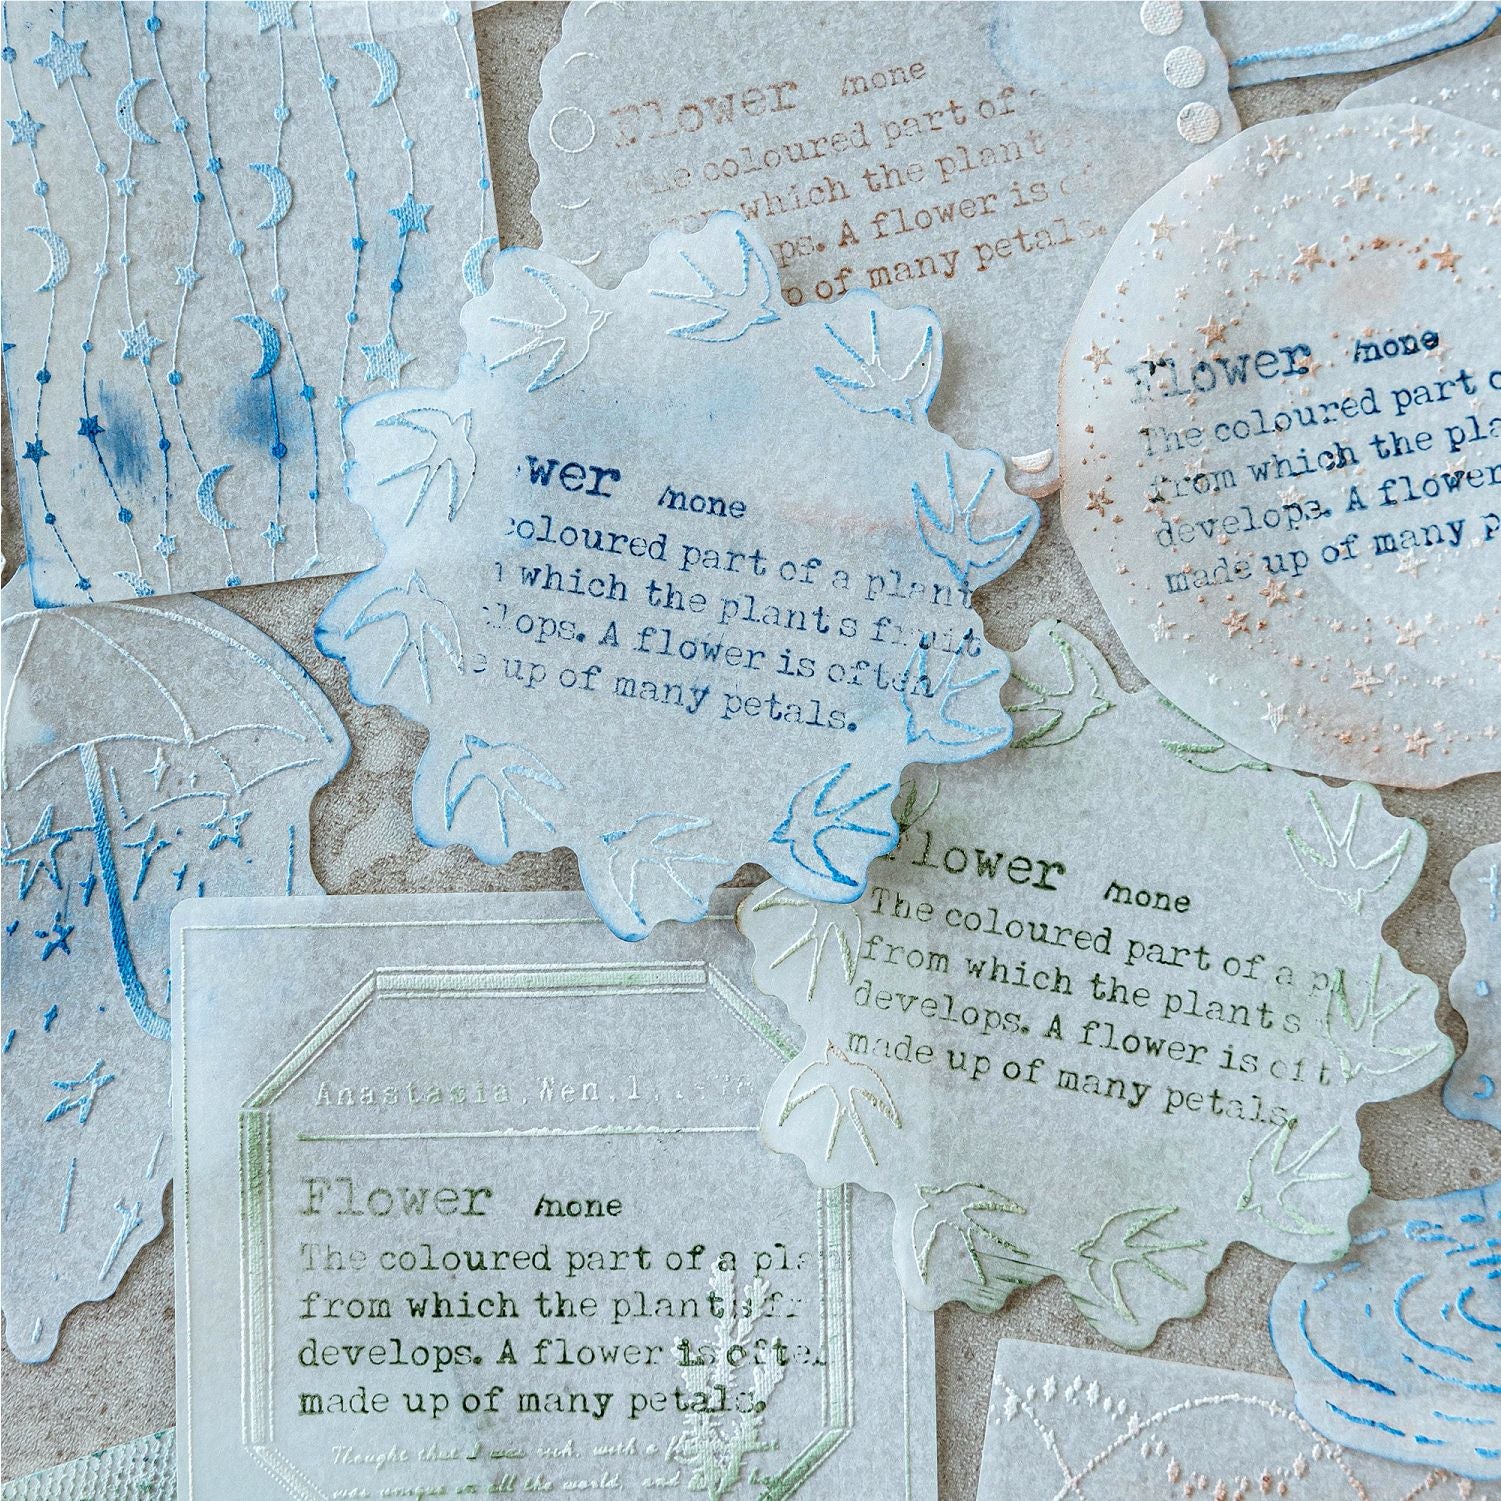 Flower /none
The coloured part of a
which the plant
ps. A flower is
p of many petals.
Flower /none
The coloured part o
from which the pla
develops. A flower
made up of many p
wer /none
coloured part of a plant
which the plants fruit
lops. A flower is often
e up of many petals.
Flower /none
The coloured part of a pl
from which the plants
develops. A flower is oft
made up of many petals.
Anastasia, Wen, 1,
Flower /none
The coloured part of a plan
from which the plants fr
develops. A flower is often
made up of many petals.
Thought that I was rich, with a
was unique in all the world, and